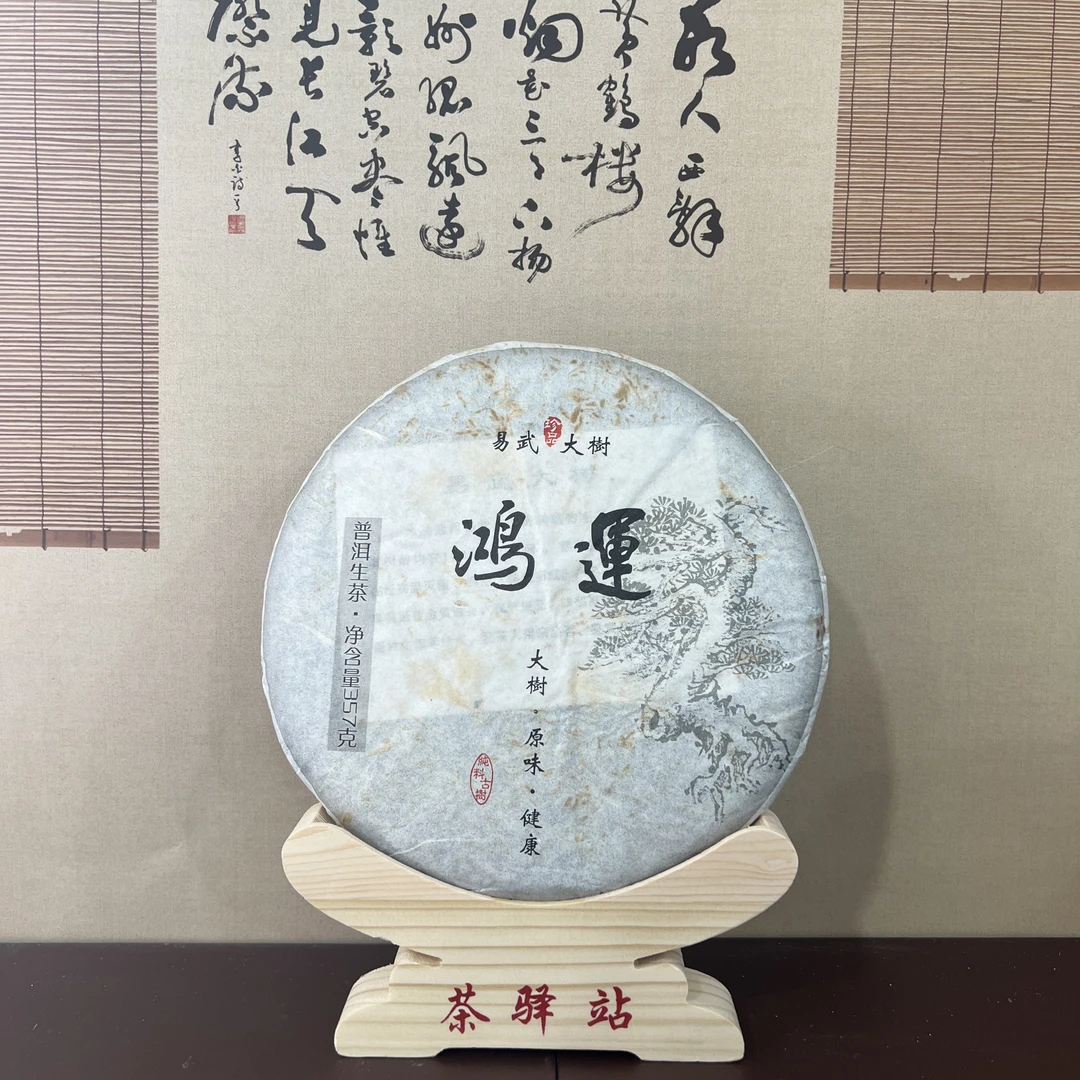 故人西辞
黄鶴楼
烟花三月下扬
州孤帆遠
影碧空尽惟
見長江天
際流
李白詩一
易武 珍品 大樹
鴻運
普洱生茶·净含量357克
大樹·原味·健康
純料古樹
茶驿站